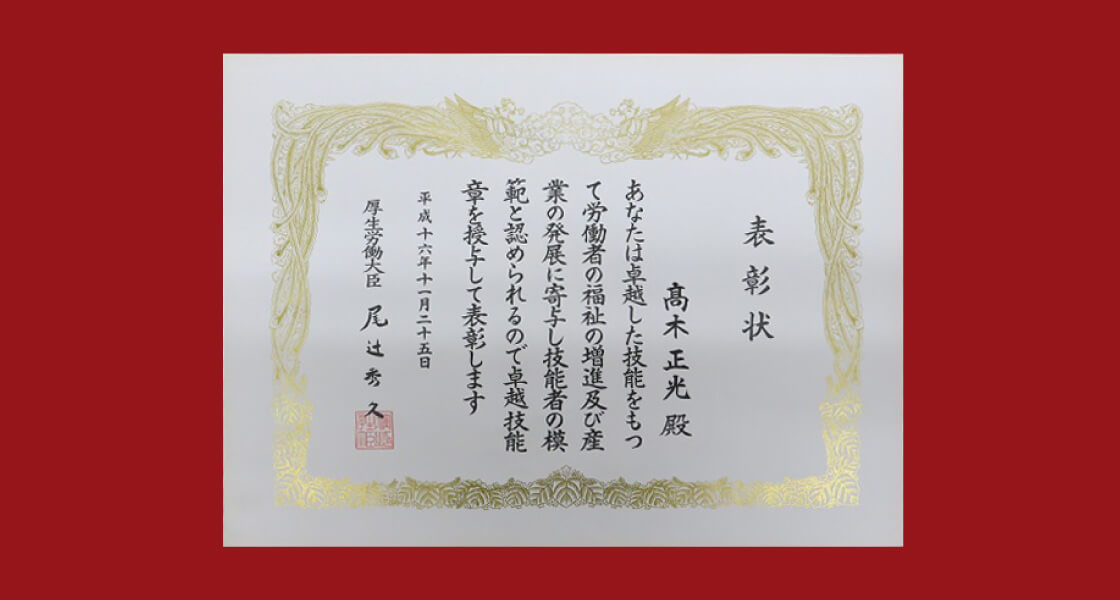 表彰状
髙木正光 殿
あなたは卓越した技能をもつ
て労働者の福祉の増進及び産
業の発展に寄与し技能者の模
範と認められるので卓越技能
章を授与して表彰します
平成十六年十一月二十五日
厚生労働大臣 尾辻秀久